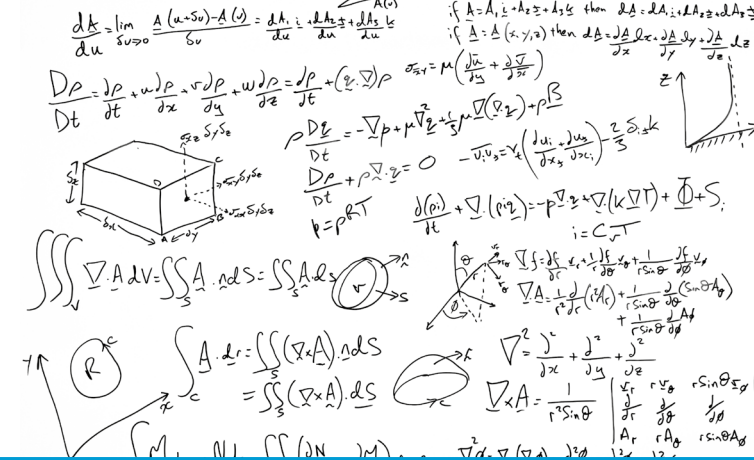 dA/du = lim δu→0 A(u+δu)-A(u)/δu = dA₁/du i + dA₂/du j + dA₃/du k
A(u)
if A = A₁i + A₂j + A₃k then dA = dA₁i + dA₂j + dA₃
if A = A(x,y,z) then dA = ∂A/∂x dx + ∂A/∂y dy + ∂A/∂z dz
Dρ/Dt = ∂ρ/∂t + u∂ρ/∂x + v∂ρ/∂y + w∂ρ/∂z = ∂ρ/∂t + (q.∇)ρ
z
ρ Dq/Dt = -∇p + μ∇²q + 1/3 μ∇(∇.q) + ρB
Dρ/Dt + ρ∇.q = 0
p = ρRT
∂(ρi)/∂t + ∇.(ρiq) = -p∇.q + ∇.(k∇T) + Φ + Sᵢ
i = CᵥT
δz
δx
δy
D
C
A
B
∭ᵥ ∇.A dV = ∬ₛ A.n dS = ∬ₛ A.ds
V
n
S
θ
φ
∇f = ∂f/∂r vᵣ + 1/r ∂f/∂θ v_θ + 1/rsinθ ∂f/∂φ v_φ
∇.A = 1/r² ∂/∂r (r²Aᵣ) + 1/rsinθ ∂/∂θ (sinθA_θ)
+ 1/rsinθ ∂A_φ/∂φ
y
R
C
x
∫_C A.dr = ∬ₛ (∇×A).n dS
= ∬ₛ (∇×A).dS
C
∇² = ∂²/∂x + ∂²/∂y + ∂²/∂z
∇×A = 1/r²sinθ | vᵣ rv_θ rsinθv_φ
∂/∂r ∂/∂θ ∂/∂φ
Aᵣ rA_θ rsinθA_φ